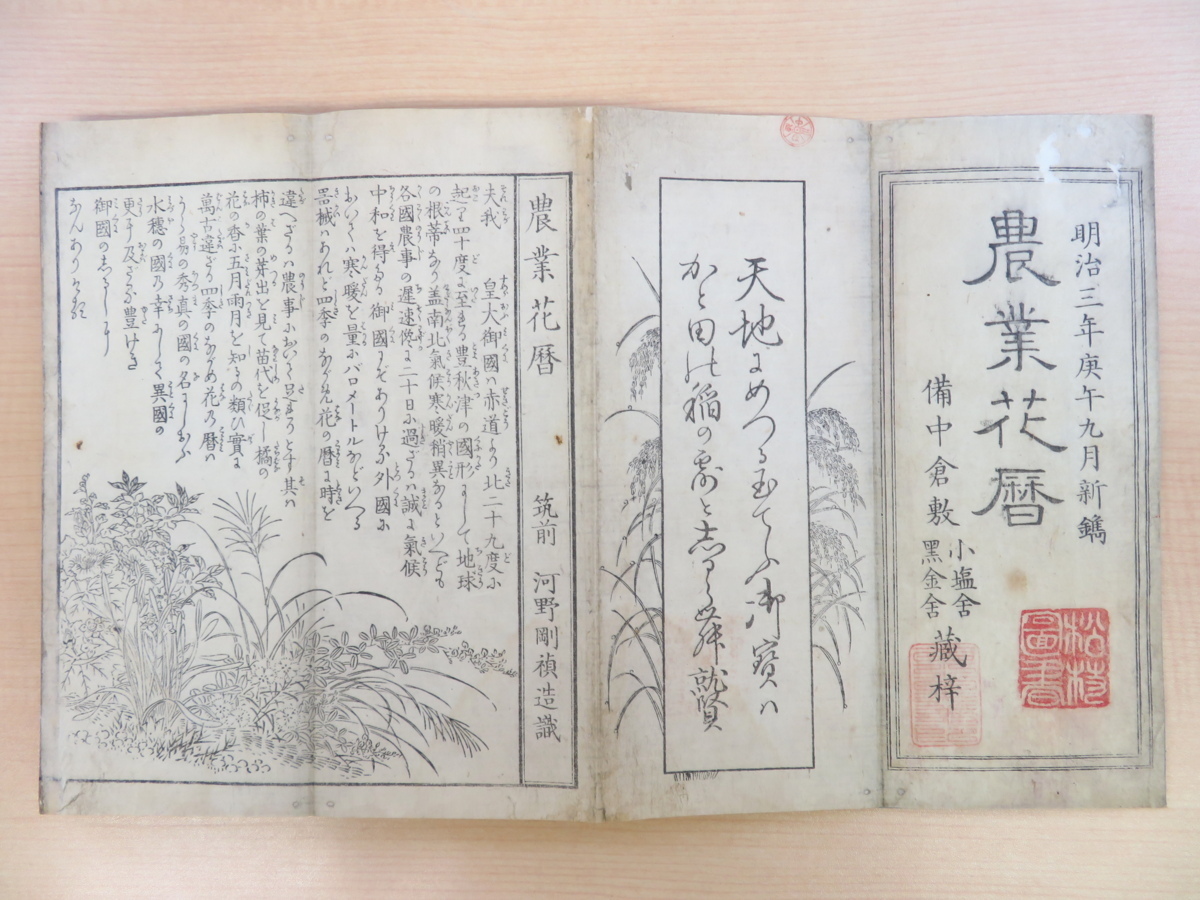 明治三年庚午九月新鐫
農業花暦
備中倉敷
小塩舎
黒金舎
藏梓
松村
圖書
天地にめつる玉てふ御寳ハ
かと田の稲の
就賢
農業花暦
筑前 河野剛禎造識
夫我 皇大御國ハ赤道より北二十九度に
起り四十度に至れる豊秋津の國形にして地球
の根蒂なり蓋南北氣候寒暖稍異なるといへども
各國農事の遅速僅に二十日に過ざるハ誠に氣候
中和を得たる御國にぞありける外國に
おいてハ寒暖を量るバロメートルなどいへる
器械ハあれど四季のながめ花の暦に時を
違へざるハ農事において足れりとす其ハ
柿の葉の芽出を見て苗代を促し橘の
花の香に五月雨月を知るの類ひ實に
萬古違ざる四季のながめ花乃暦ハ
うら易の秀真の國の名にしおふ
水穂の國乃幸にして異國の
更に及ざる豊けき
御國のしるしに
なんありける